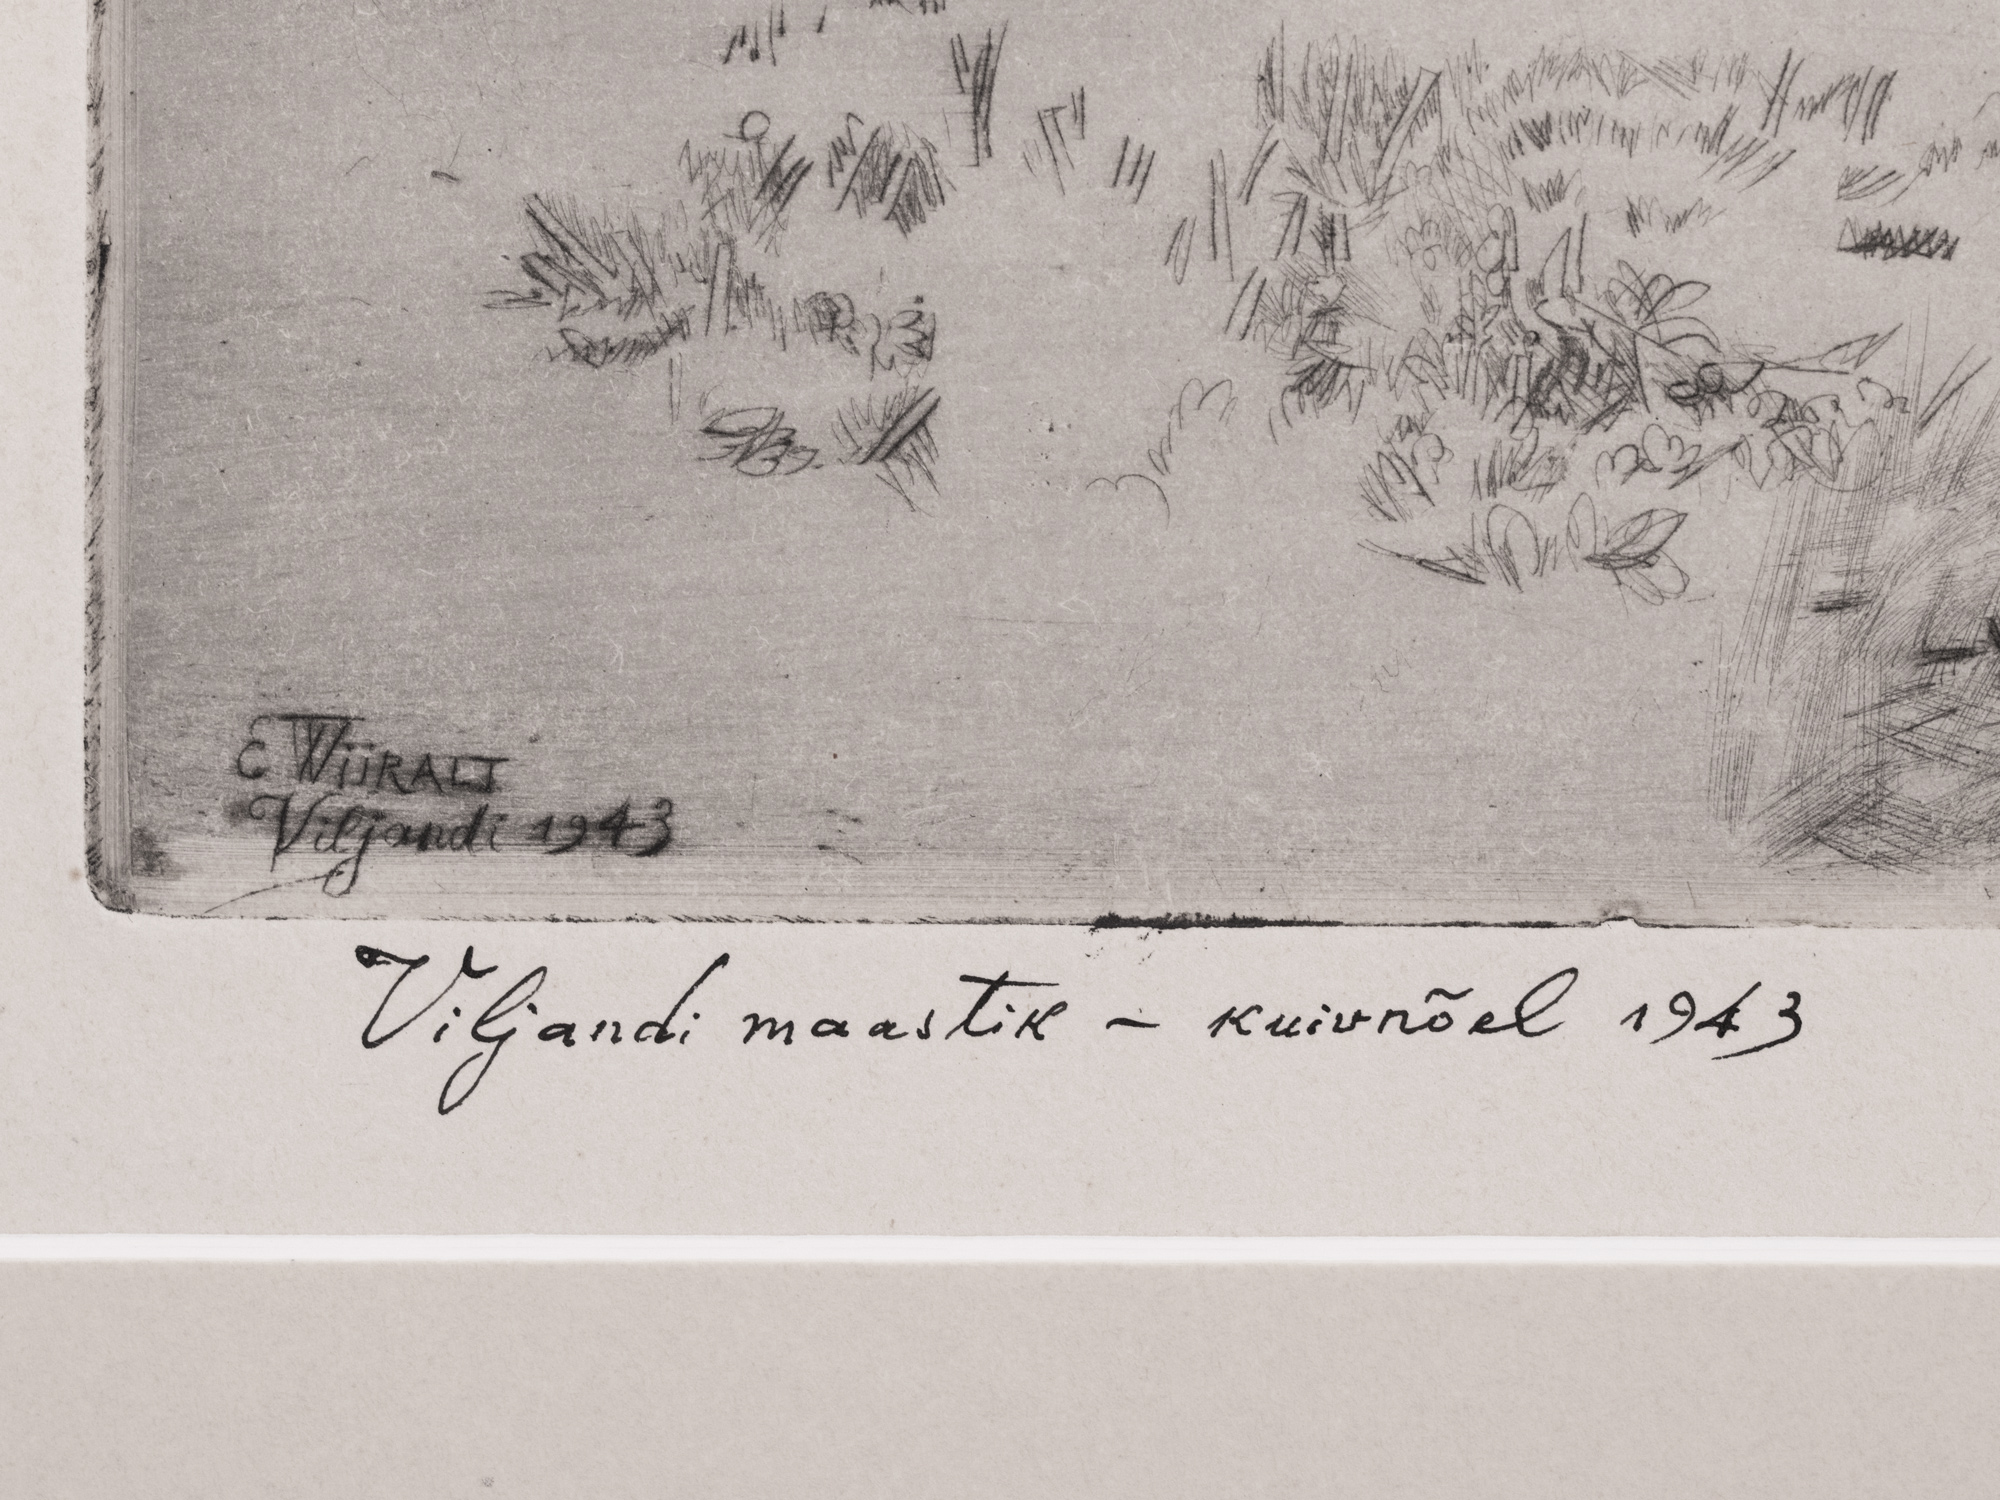 E WiiRALT
Viljandi 1943
Viljandi maastik – kuivnõel 1943